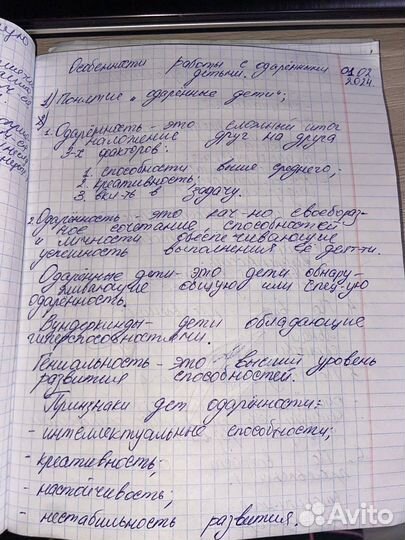 Особенности работы с одарёнными
детьми.
01.02
2024.
1) Понятие „одарённые дети";
2)
1. Одарённость - это сложный итог
наложение друг на друга
3-х факторов:
1. способности выше среднего;
2. креативность;
3. вкл-ть в задачу.
2. Одарённость - это кач-но своеобраз-
ное сочетание способностей
и личности обеспечивающие
успешность выполнения её деят-ти.
Одарённые дети - это дети обнару-
живающие общую или спец-ую
одарённость.
Вундеркинды - дети обладающие
гиперспособностями.
Гениальность - это высший уровень
развития способностей.
Признаки дет. одарённости:
- интеллектуальные способности;
- креативность;
- настойчивость;
- нестабильность развития.
Avito